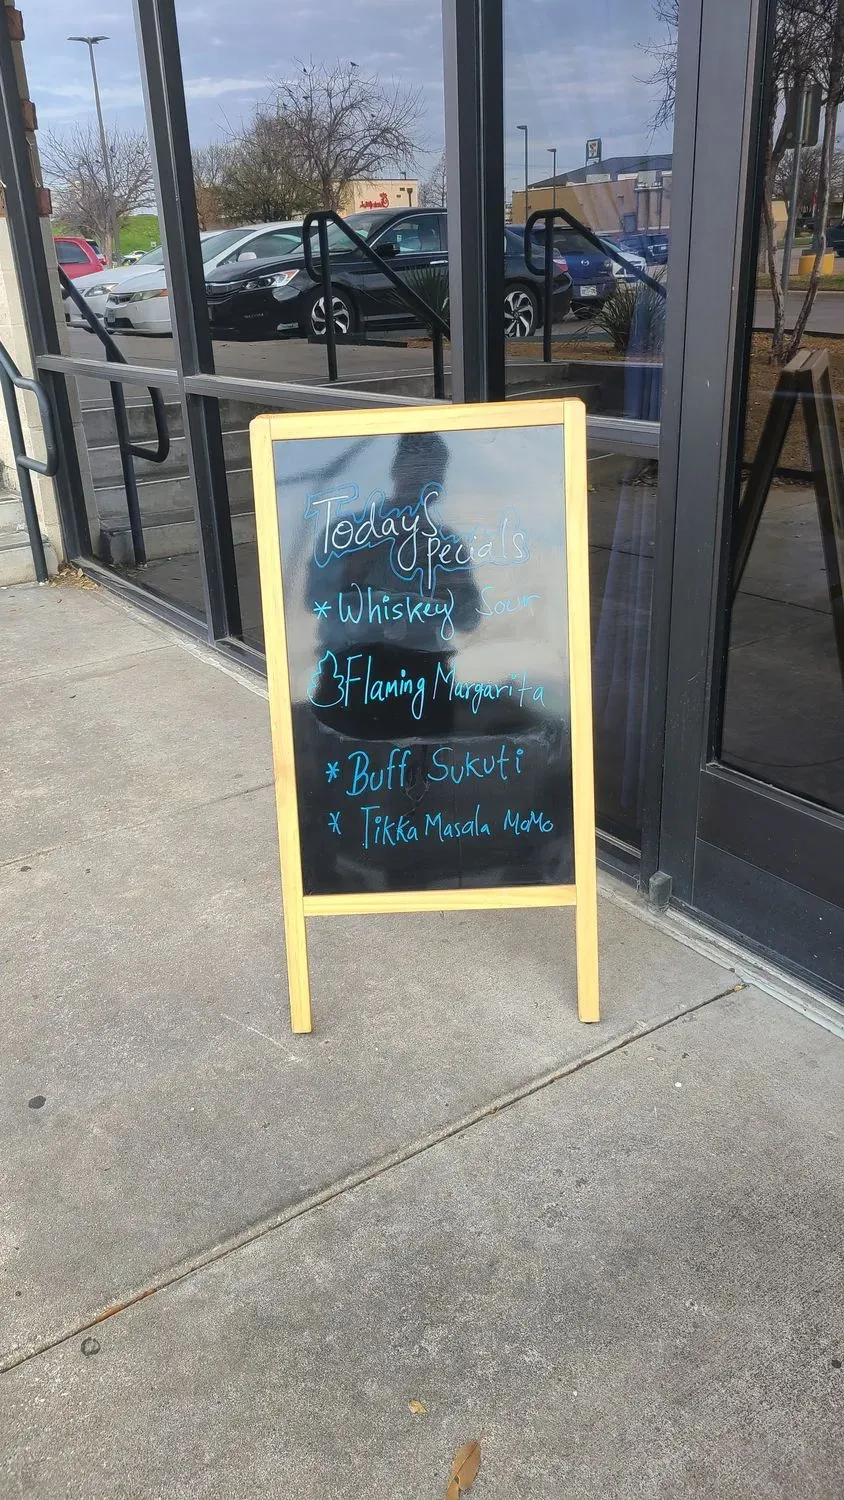 Today Specials
* Whiskey Sour
Flaming Margarita
* Buff Sukuti
* Tikka Masala MoMo